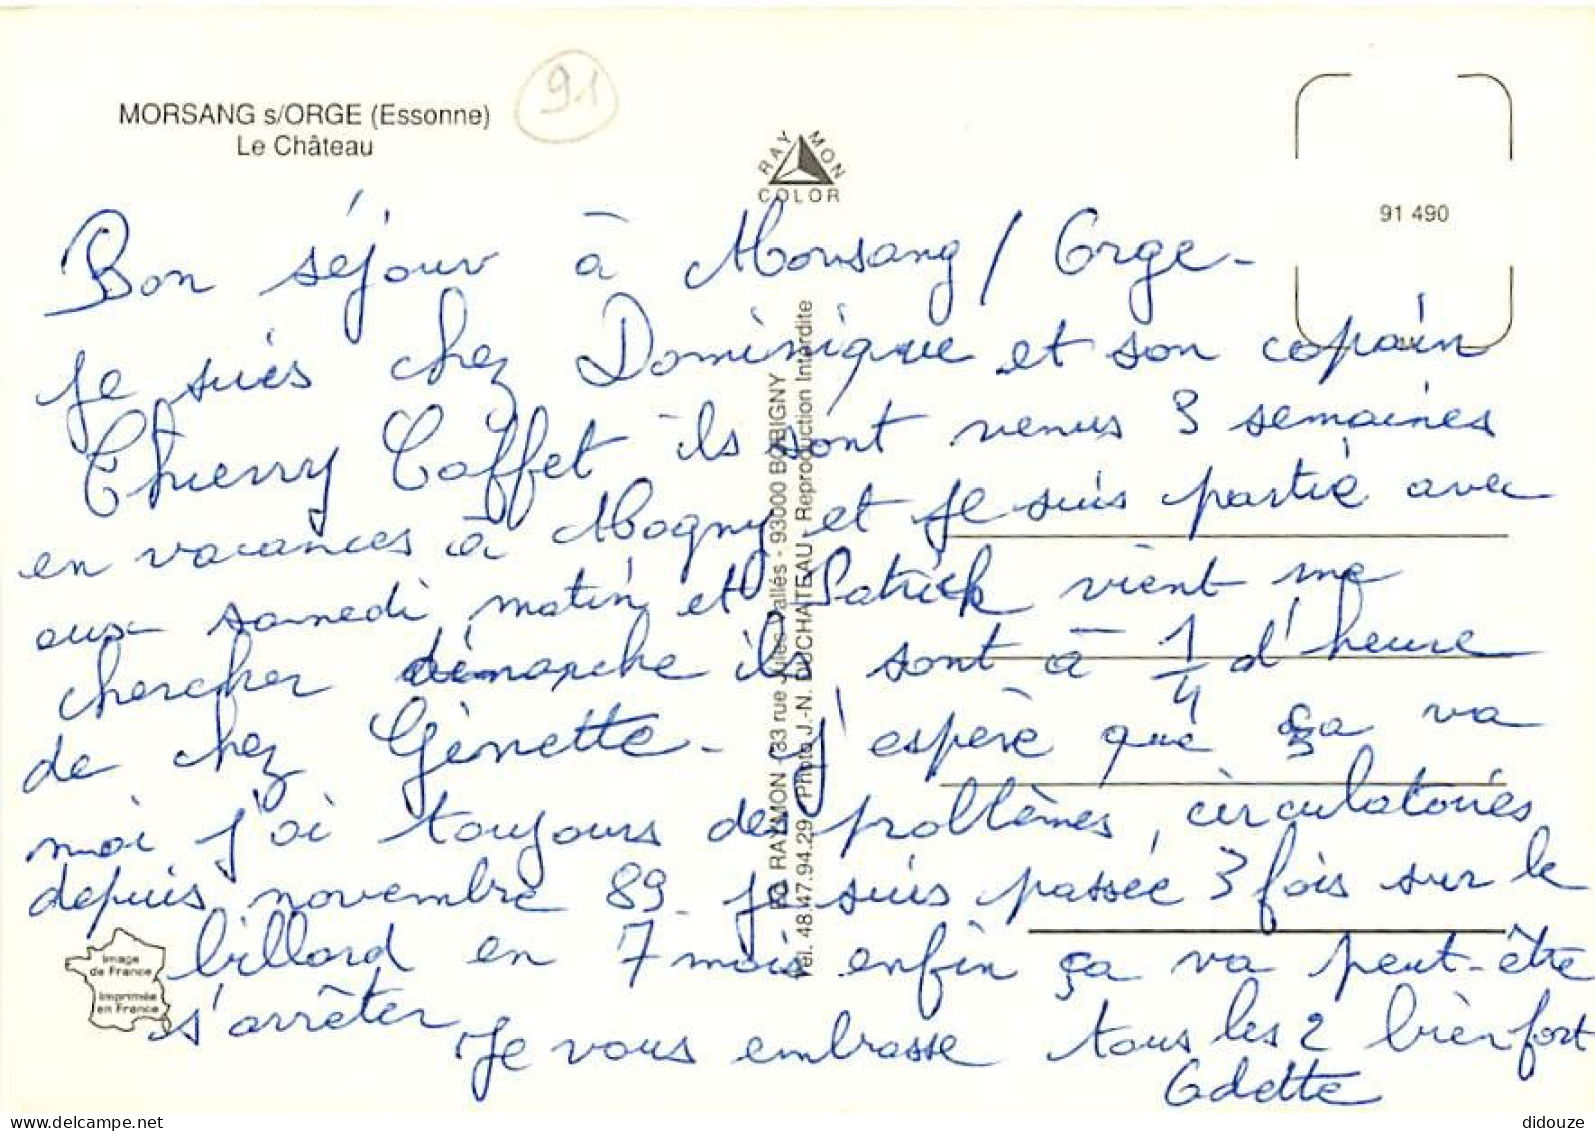 MORSANG s/ORGE (Essonne)
Le Château
91
RAYMON
COLOR
91 490
Bon séjour à Morsang / Orge -
je suis chez Dominique et son copain
Thierry Coffet ils sont venus 3 semaines
en vacances à Magny et je suis partie avec
eux samedi matin et Patrick vient me
chercher dimanche ils sont à 1/4 d'heure
de chez Ginette - j'espère que ça va
moi j'ai toujours des problèmes circulatoires
depuis novembre 89 - je suis passée 3 fois sur le
billard en 7 mois enfin ça va peut-être
s'arrêter
Je vous embrasse tous les 2 bien fort
Odette
RAYMON (33 rue Jules Vallés - 93000 BOBIGNY
Tél. 48.47.94.29 Photo J.-N. DUCHATEAU - Reproduction Interdite
Image
de France
Imprimée
en France
didouze